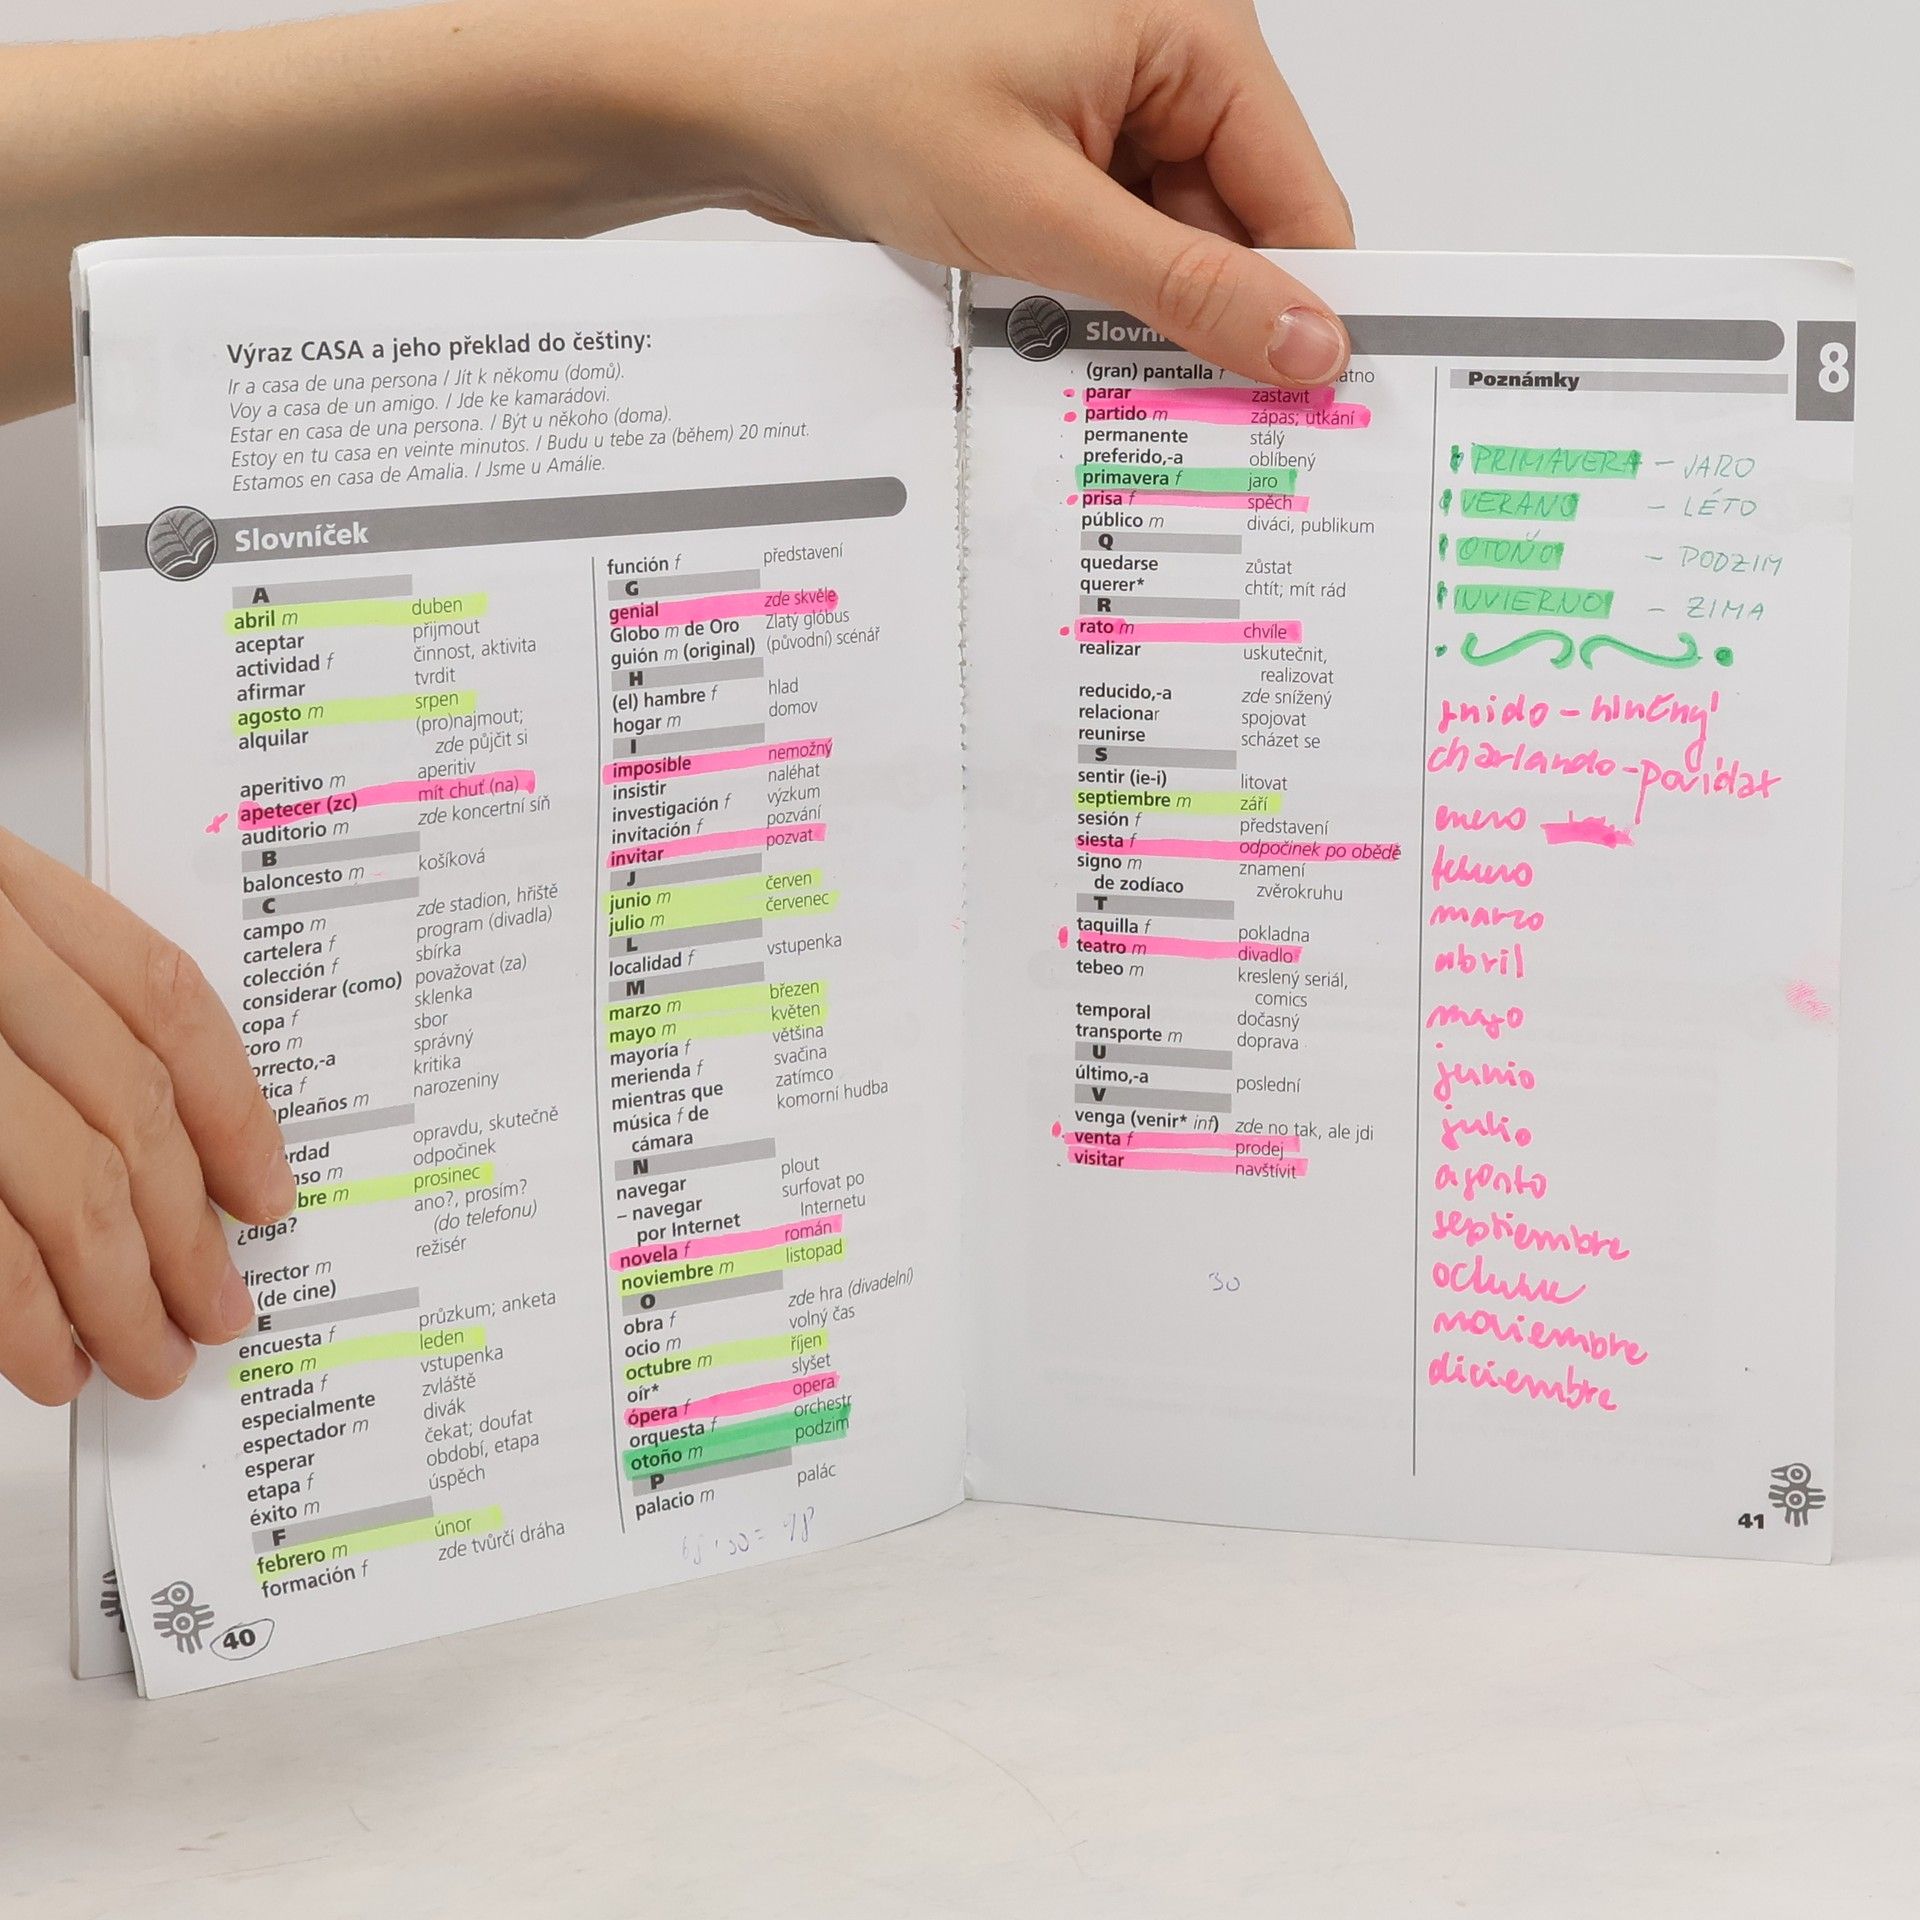 Výraz CASA a jeho překlad do češtiny:
Ir a casa de una persona / Jít k někomu (domů).
Voy a casa de un amigo. / Jde ke kamarádovi.
Estar en casa de una persona. / Být u někoho (doma).
Estoy en tu casa en veinte minutos. / Budu u tebe za (během) 20 minut.
Estamos en casa de Amalia. / Jsme u Amálie.
Slovníček
A
abril m duben
aceptar přijmout
actividad f činnost, aktivita
afirmar tvrdit
agosto m srpen
alquilar (pro)najmout;
zde půjčit si
aperitivo m aperitiv
apetecer (zc) mít chuť (na)
auditorio m zde koncertní síň
B
baloncesto m košíková
C
campo m zde stadion, hřiště
cartelera f program (divadla)
colección f sbírka
considerar (como) považovat (za)
copa f sklenka
coro m sbor
orrecto,-a správný
tica f kritika
pleaños m narozeniny
rdad opravdu, skutečně
nso m odpočinek
bre m prosinec
¿diga? ano?, prosím?
(do telefonu)
director m režisér
(de cine)
E
encuesta f průzkum; anketa
enero m leden
entrada f vstupenka
especialmente zvláště
espectador m divák
esperar čekat; doufat
etapa f období, etapa
éxito m úspěch
F
febrero m únor
formación f zde tvůrčí dráha
40
función f představení
G
genial zde skvěle
Globo m de Oro Zlatý glóbus
guión m (original) (původní) scénář
H
(el) hambre f hlad
hogar m domov
I
imposible nemožný
insistir naléhat
investigación f výzkum
invitación f pozvání
invitar pozvat
J
junio m červen
julio m červenec
L
localidad f vstupenka
M
marzo m březen
mayo m květen
mayoría f většina
merienda f svačina
mientras que zatímco
música f de komorní hudba
cámara
N
navegar plout
– navegar surfovat po
por Internet Internetu
novela f román
noviembre m listopad
O
obra f zde hra (divadelní)
ocio m volný čas
octubre m říjen
oír* slyšet
ópera f opera
orquesta f orchestr
otoño m podzim
P
palacio m palác
Slovn
8
(gran) pantalla f
parar zastavit
partido m zápas; utkání
permanente stálý
preferido,-a oblíbený
primavera f jaro
prisa f spěch
público m diváci, publikum
Q
quedarse zůstat
querer* chtít; mít rád
R
rato m chvíle
realizar uskutečnit,
realizovat
reducido,-a zde snížený
relacionar spojovat
reunirse scházet se
S
sentir (ie-i) litovat
septiembre m září
sesión f představení
siesta f odpočinek po obědě
signo m znamení
de zodíaco zvěrokruhu
T
taquilla f pokladna
teatro m divadlo
tebeo m kreslený seriál,
comics
temporal dočasný
transporte m doprava
U
último,-a poslední
V
venga (venir* inf) zde no tak, ale jdi
venta f prodej
visitar navštívit
30
Poznámky
PRIMAVERA – JARO
VERANO – LÉTO
OTOÑO – PODZIM
INVIERNO – ZIMA
charlando – povídat
enero
marzo
abril
mayo
junio
julio
agosto
septiembre
noviembre
diciembre
41